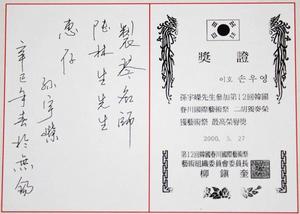 製琴名師
陈林生先生
惠存
孙宇嵘
辛巳年春於無錫
奬證
이호 손우영
孫宇嶸先生參加第12回韓國
春川國際藝術祭 二胡獨奏榮
獲藝術祭 最高榮譽奬
2000. 5. 27
第12回韓國春川國際藝術祭
藝術組織委員會委員長
柳鎭奎